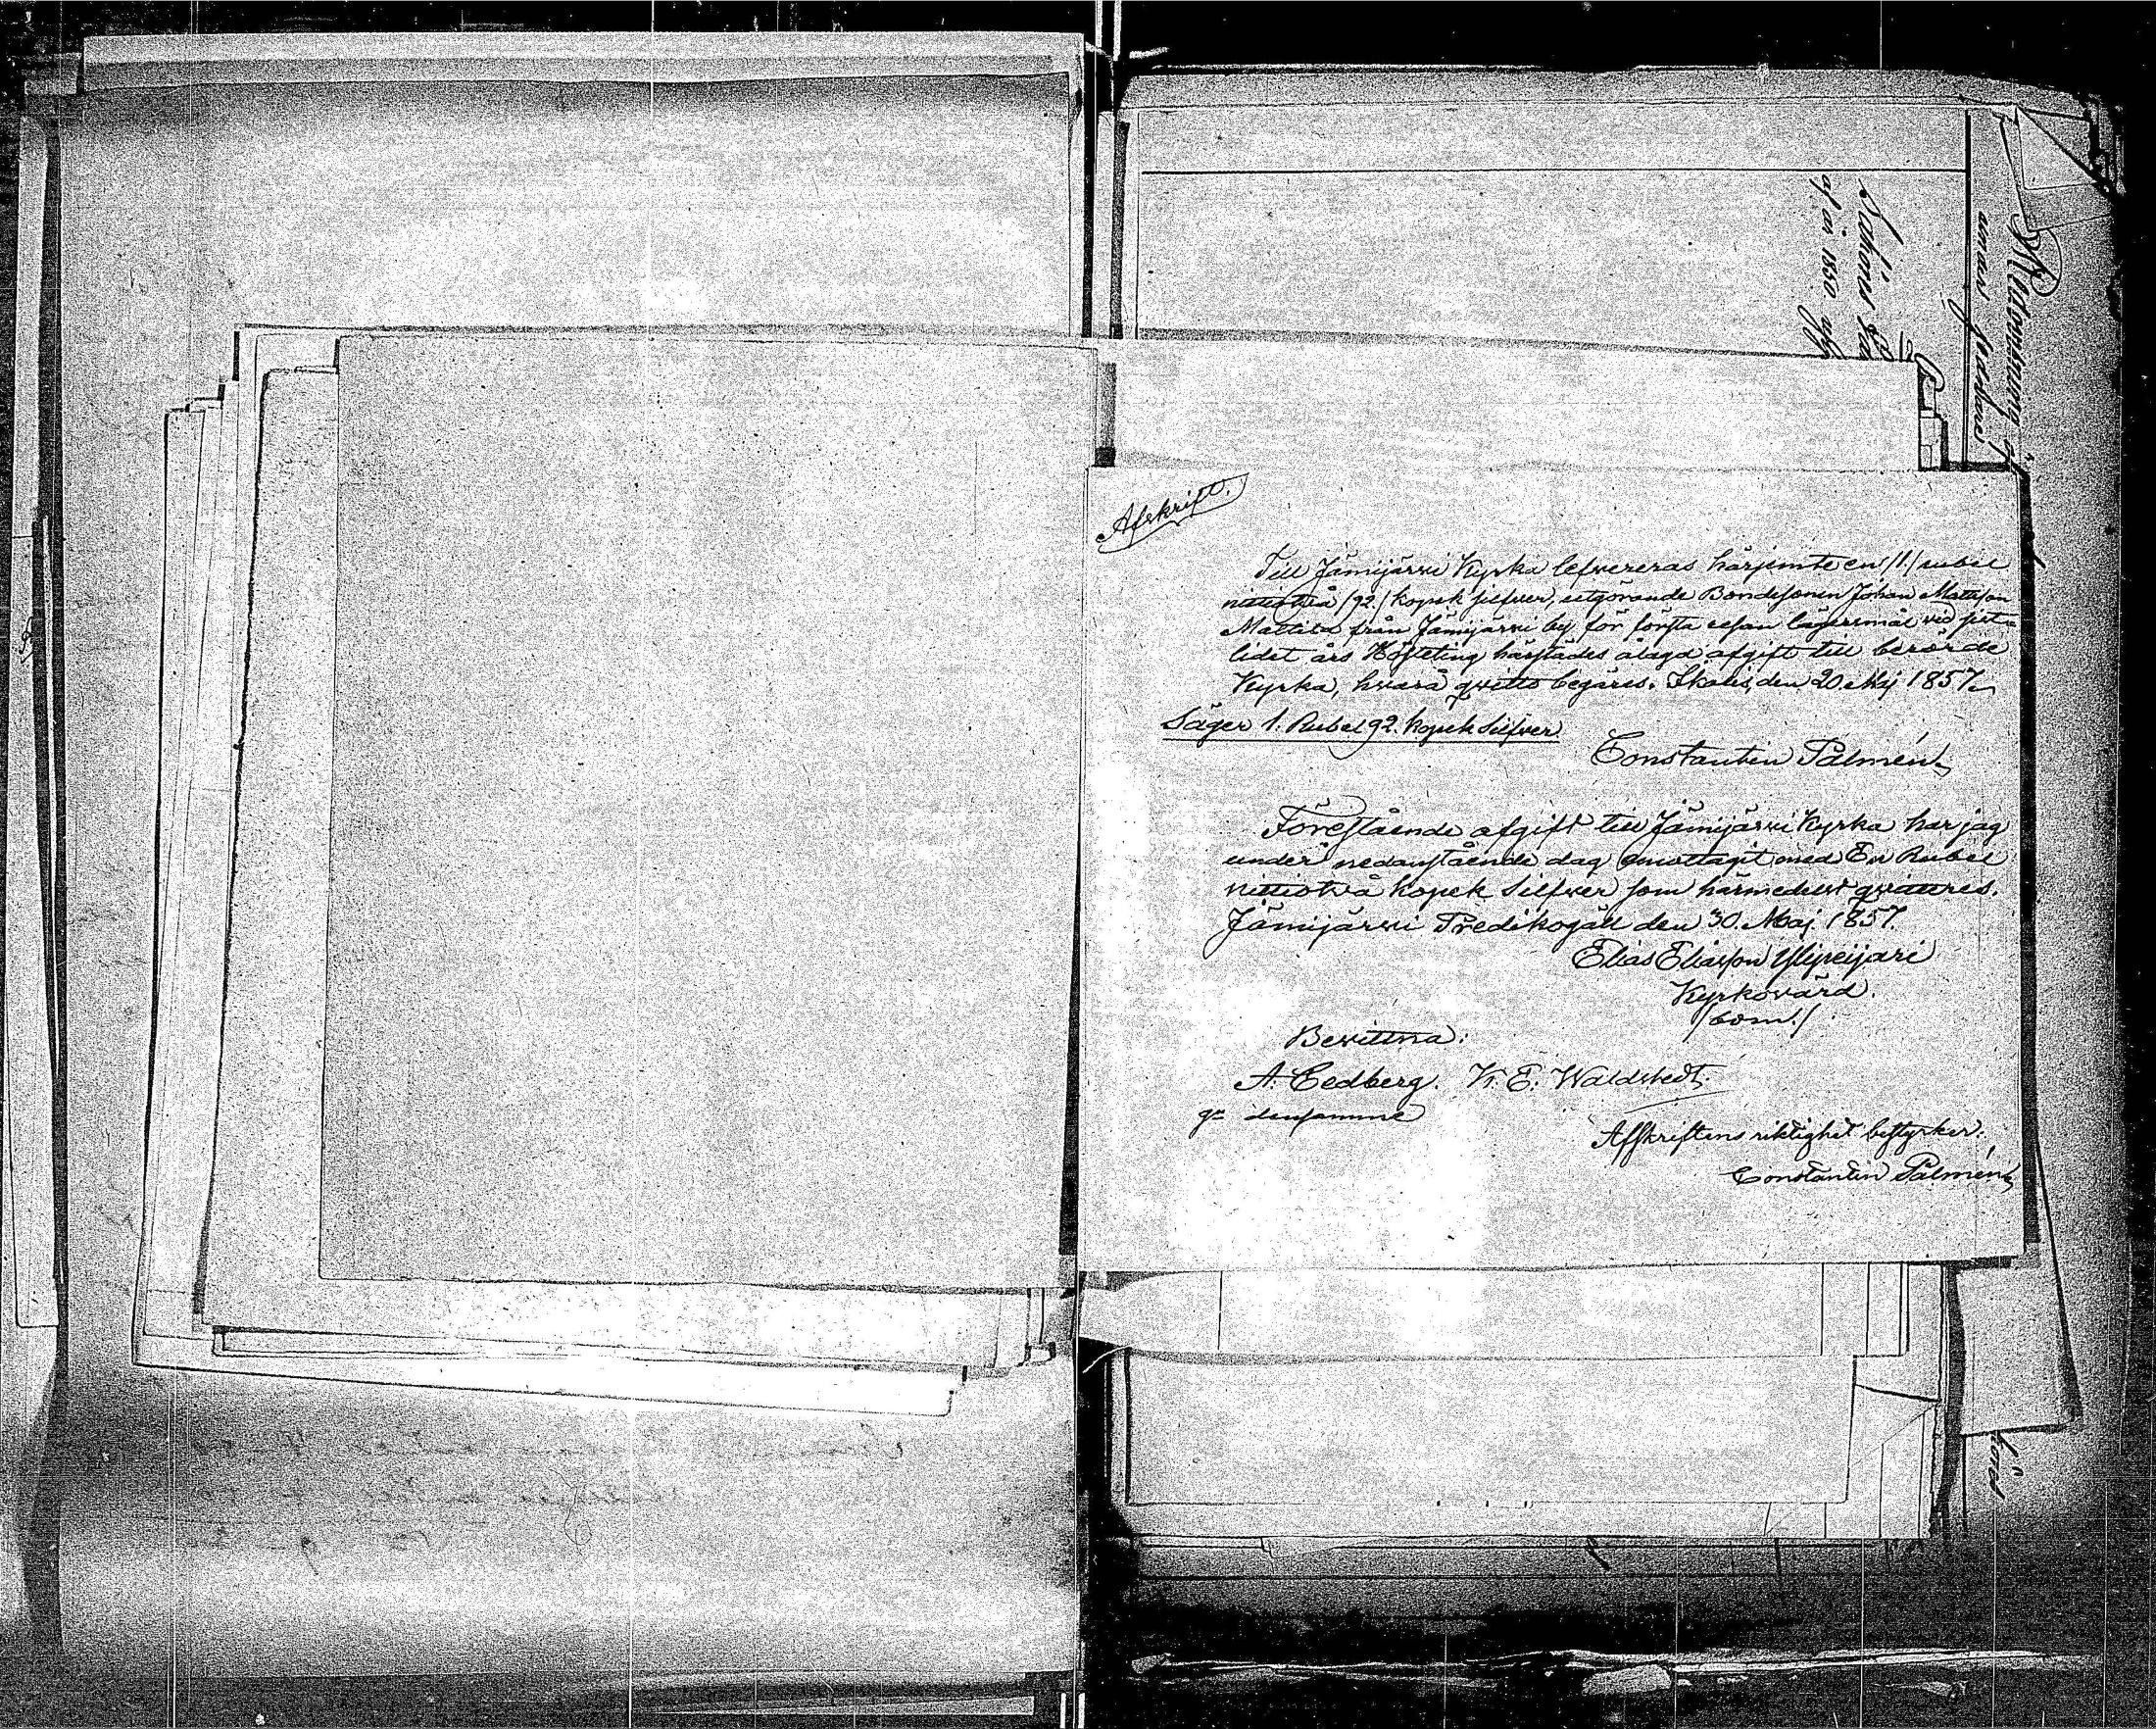 Afskrift.
Till Jämijärwi Kyrka lefwereras härjemte en /1./ rubel
nittiotwå /92./ kopek silfwer, utgörande Bondesonen Johan Mattsson
Mattila från Jämijärwi by för första resan lägersmål wid sist-
lidet års Hösteting härstädes ålagd afgift till berörde
Kyrka, hwarå qwitto begäres. Ikalis, den 20 Maj 1857.
Säger 1. Rubel 92. kopek Silfwer.
Constantin Palmén
Förestående afgift till Jämijärwi Kyrka har jag
under nedanstående dag emottagit med En Rubel
nittiotwå kopek Silfwer som härmedelst qwitteres.
Jämijärwi Predikogäll den 30. Maj 1857.
Elias Eliasson
Kyrkowärd.
/bom./
Bewittna:
A. Cedberg. K. E. Waldstedt.
gm densamme
Afskriftens riktighet bestyrker:
Constantin Palmén
af år 1850